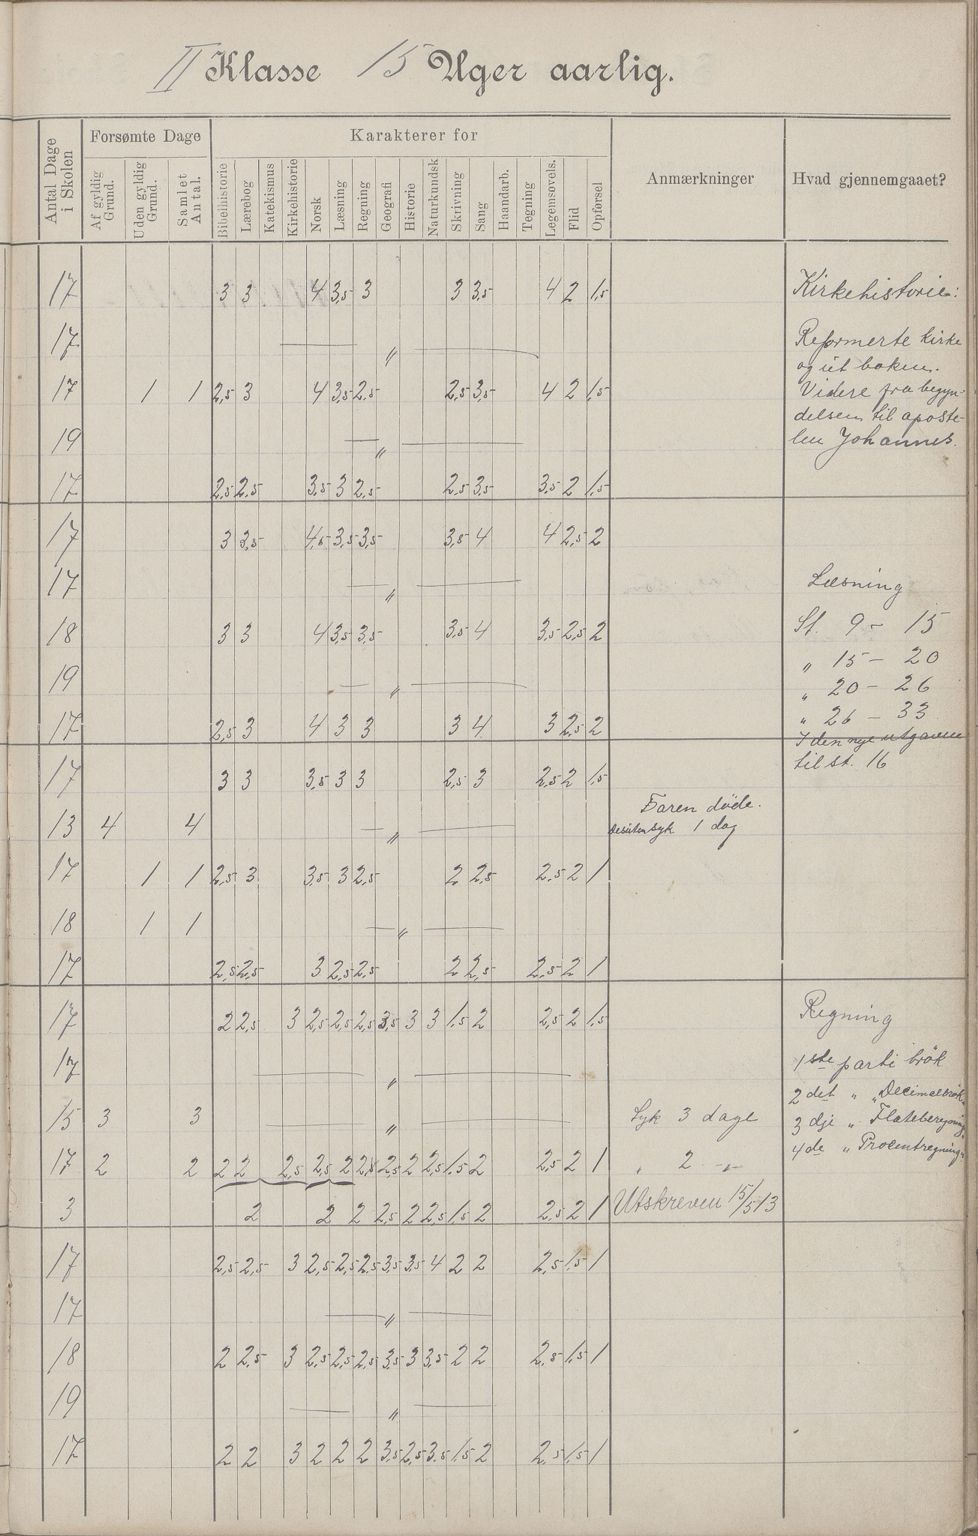 II Klasse 15 Uger aarlig.
Antal Dage i Skolen | Forsømte Dage | Karakterer for | Anmærkninger | Hvad gjennemgaaet?
Af gyldig Grund. | Uden gyldig Grund. | Samlet Antal. | Bibelhistorie | Lærebog | Katekismus | Kirkehistorie | Norsk | Læsning | Regning | Geografi | Historie | Naturkundsk | Skrivning | Sang | Haandarb. | Tegning | Legemsøvels. | Flid | Opførsel
17 3 3 4 3,5 3 3 3,5 4 2 1,5 Kirkehistorie:
17 — „ — Reformerte kirke
og ut boken.
17 1 1 2,5 3 4 3,5 2,5 2,5 3,5 4 2 1,5 Videre fra begyn-
delsen til aposte-
19 — „ — len Johannes.
17 2,5 2,5 3,5 3 2,5 2,5 3,5 3,5 2 1,5
17 3 3,5 4,5 3,5 3,5 3,5 4 4 2,5 2
17 — „ — Læsning
18 3 3 4 3,5 3,5 3,5 4 3,5 2,5 2 St. 9 - 15
„ 15 - 20
19 — „ — „ 20 - 26
17 2,5 3 4 3 3 3 4 3 2,5 2 „ 26 - 33
I den nye utgaven
17 3 3 3,5 3 3 2,5 3 2,5 2 1,5 til st. 16
13 4 4 — „ — Faren døde.
desuten syk 1 dag
17 1 1 2,5 3 3,5 3 2,5 2 2,5 2,5 2 1
18 1 1 — „ —
17 2,5 2,5 3 2,5 2,5 2 2,5 2,5 2 1
17 2 2,5 3 2,5 2,5 2,5 3,5 3 3 1,5 2 2,5 2 1,5 Regning
17 — „ — 1ste parti brøk
2det „ „Decimalbrøk„
15 3 3 — „ — Syk 3 dage 3dje „ Flateberegning„
17 2 2 2 2 2,5 2,5 2 2,5 2,5 2 2,5 1,5 2 2,5 2 1 „ 2 -„- 4de „ Procentregning„
3 2 2 2 2,5 2 2,5 1,5 2 2,5 2 1 Utskreven 15/5 13
17 2,5 2,5 3 2,5 2,5 2,5 3,5 3,5 4 2 2 2,5 1,5 1
17 — „ —
18 2 2,5 3 2,5 2,5 2,5 3,5 3 3,5 2 2 2,5 1,5 1
19 — „ —
17 2 2 3 2 2 2 3,5 2,5 3,5 1,5 2 2,5 1,5 1